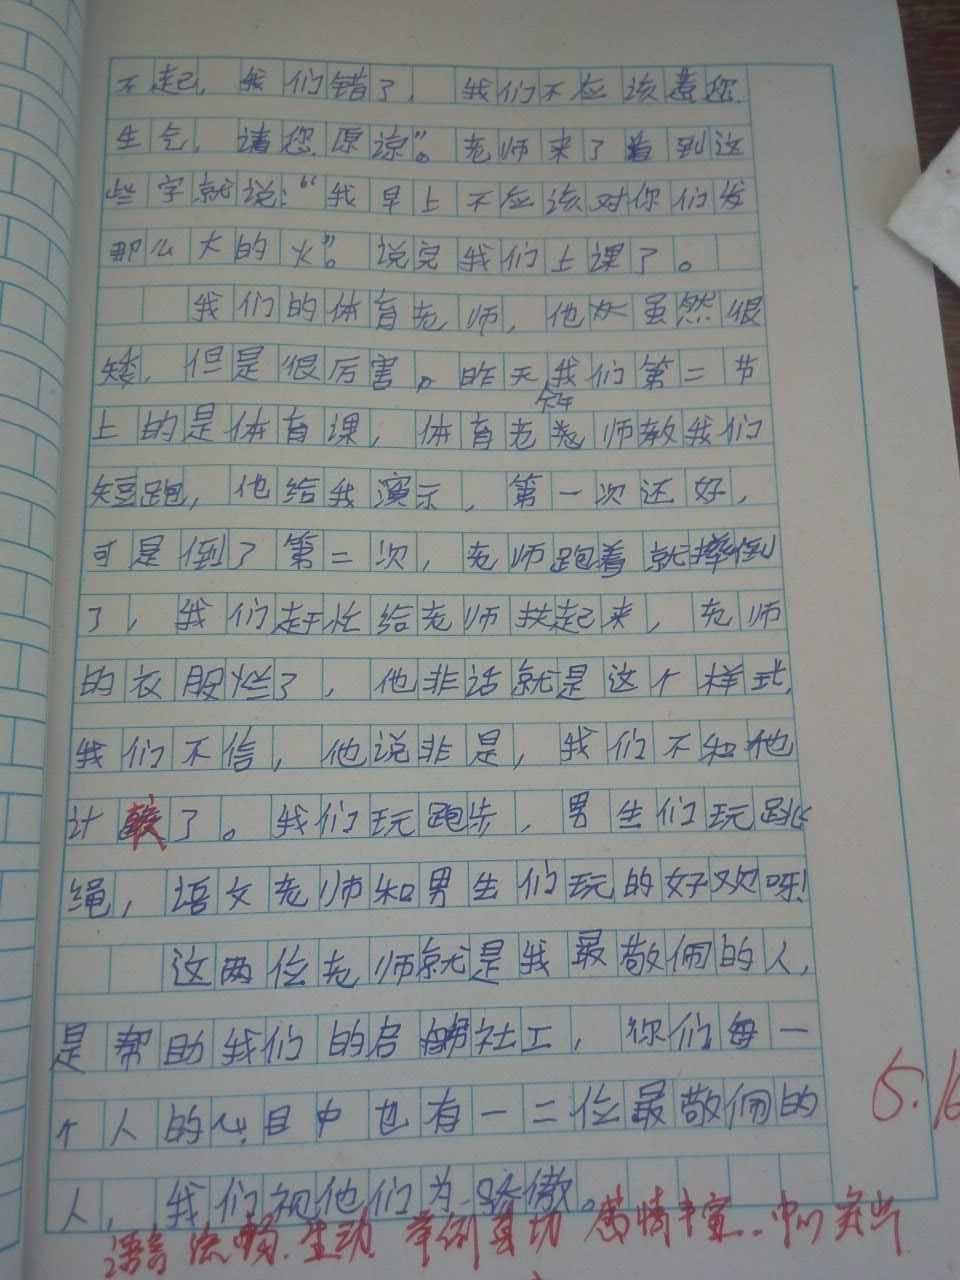 不起，我们错了，我们不应该惹您
生气，请您原谅”。老师来了看到这
些字就说：“我早上不应该对你们发
那么大的火”。说完我们上课了。
我们的体育老师，他虽然很
矮，但是很厉害。昨天我们第二节
上的是体育课，体育老师教我们
短跑，他给我演示，第一次还好，
可是倒了第二次，老师跑着就摔倒
了，我们赶忙给老师扶起来，老师
的衣服烂了，他非话就是这个样式，
我们不信，他说非是，我们不和他
计较了。我们玩跑步，男生们玩跳
绳，语文老师和男生们玩的好欢呀！
这两位老师就是我最敬佣的人，
是帮助我们的启社工，你们每一
个人的心目中也有一二位最敬佣的
人，我们视他们为骄傲。
5.16
语言流畅.生动 举例真切 感情丰富.